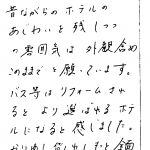 昔ながらのホテルの
あじわいを残しつつ
の雰囲気は外観含め
このままでと願っています。
バス等はリフォームされ
るとより選ばれるホテ
ルになると感じました。